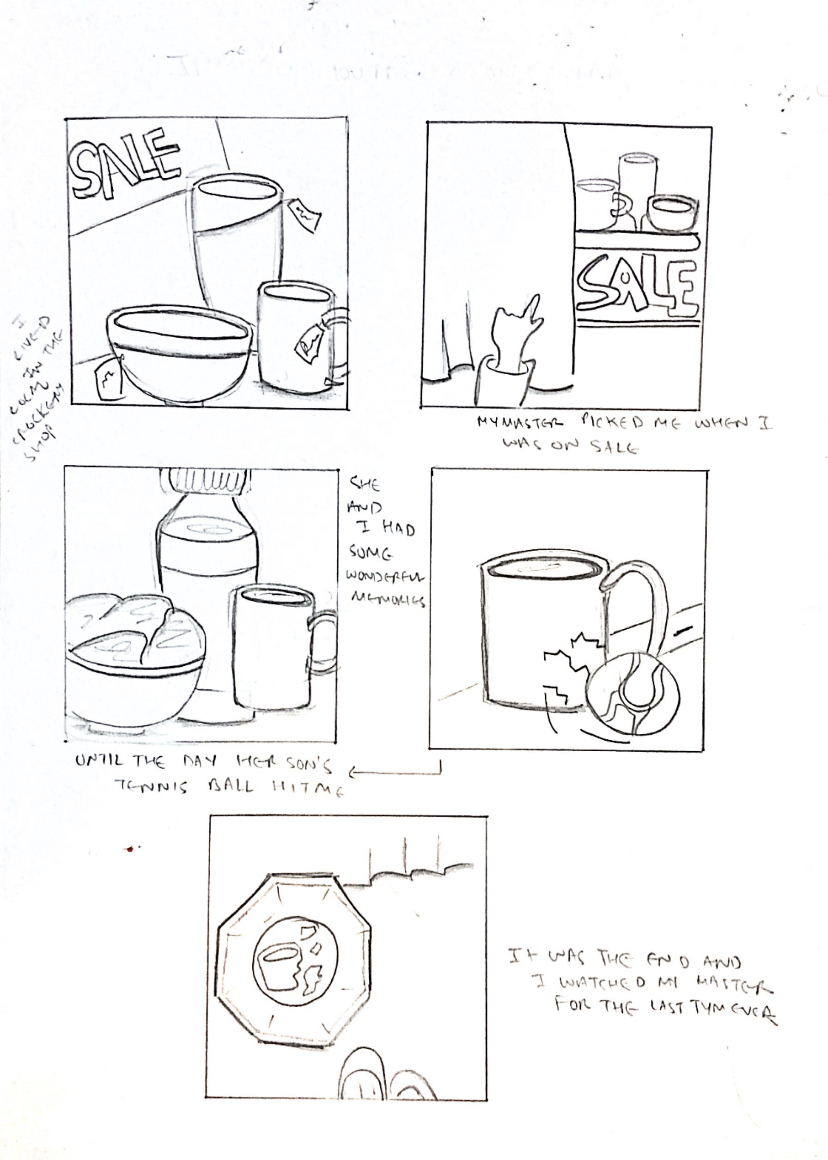 SALE
I
LIVED
IN THE
LOCAL
CROCKERY
SHOP
SALE
MY MASTER PICKED ME WHEN I
WAS ON SALE
SHE
AND
I HAD
SOME
WONDERFUL
MEMORIES
UNTIL THE DAY HER SON'S
TENNIS BALL HIT ME
IT WAS THE END AND
I WATCHED MY MASTER
FOR THE LAST TYM EVER